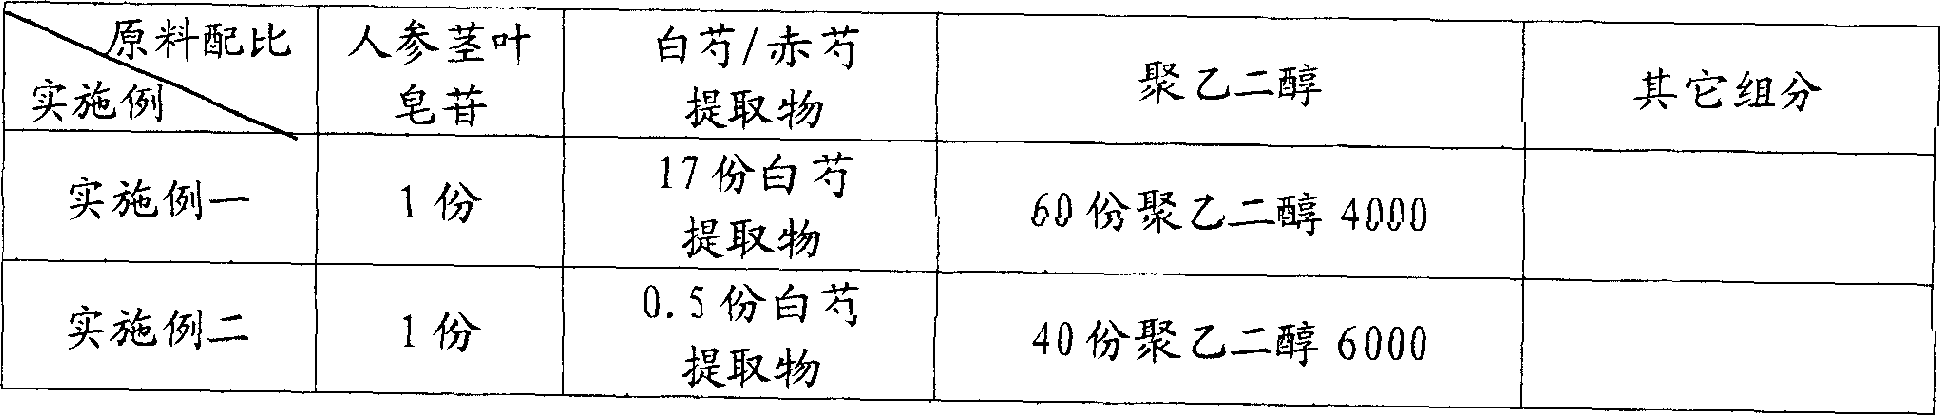 原料配比
实施例
人参茎叶
皂苷
白芍/赤芍
提取物
聚乙二醇
其它组分
实施例一
1份
17份白芍
提取物
60份聚乙二醇 4000
实施例二
1份
0.5份白芍
提取物
40份聚乙二醇 6000